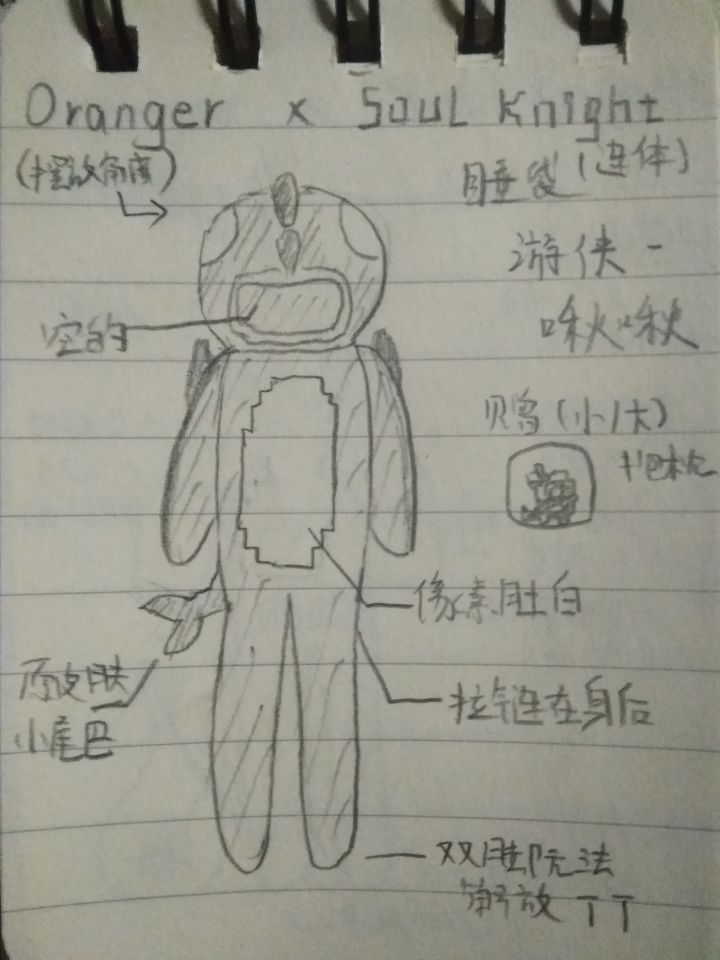 Oranger x Soul Knight
(摆放角度)
睡袋(连体)
游侠-
啾啾
空的
贝鸟(小/大)
抱枕
像素肚白
原皮肤
小尾巴
拉链在身后
双脚无法
解放TT